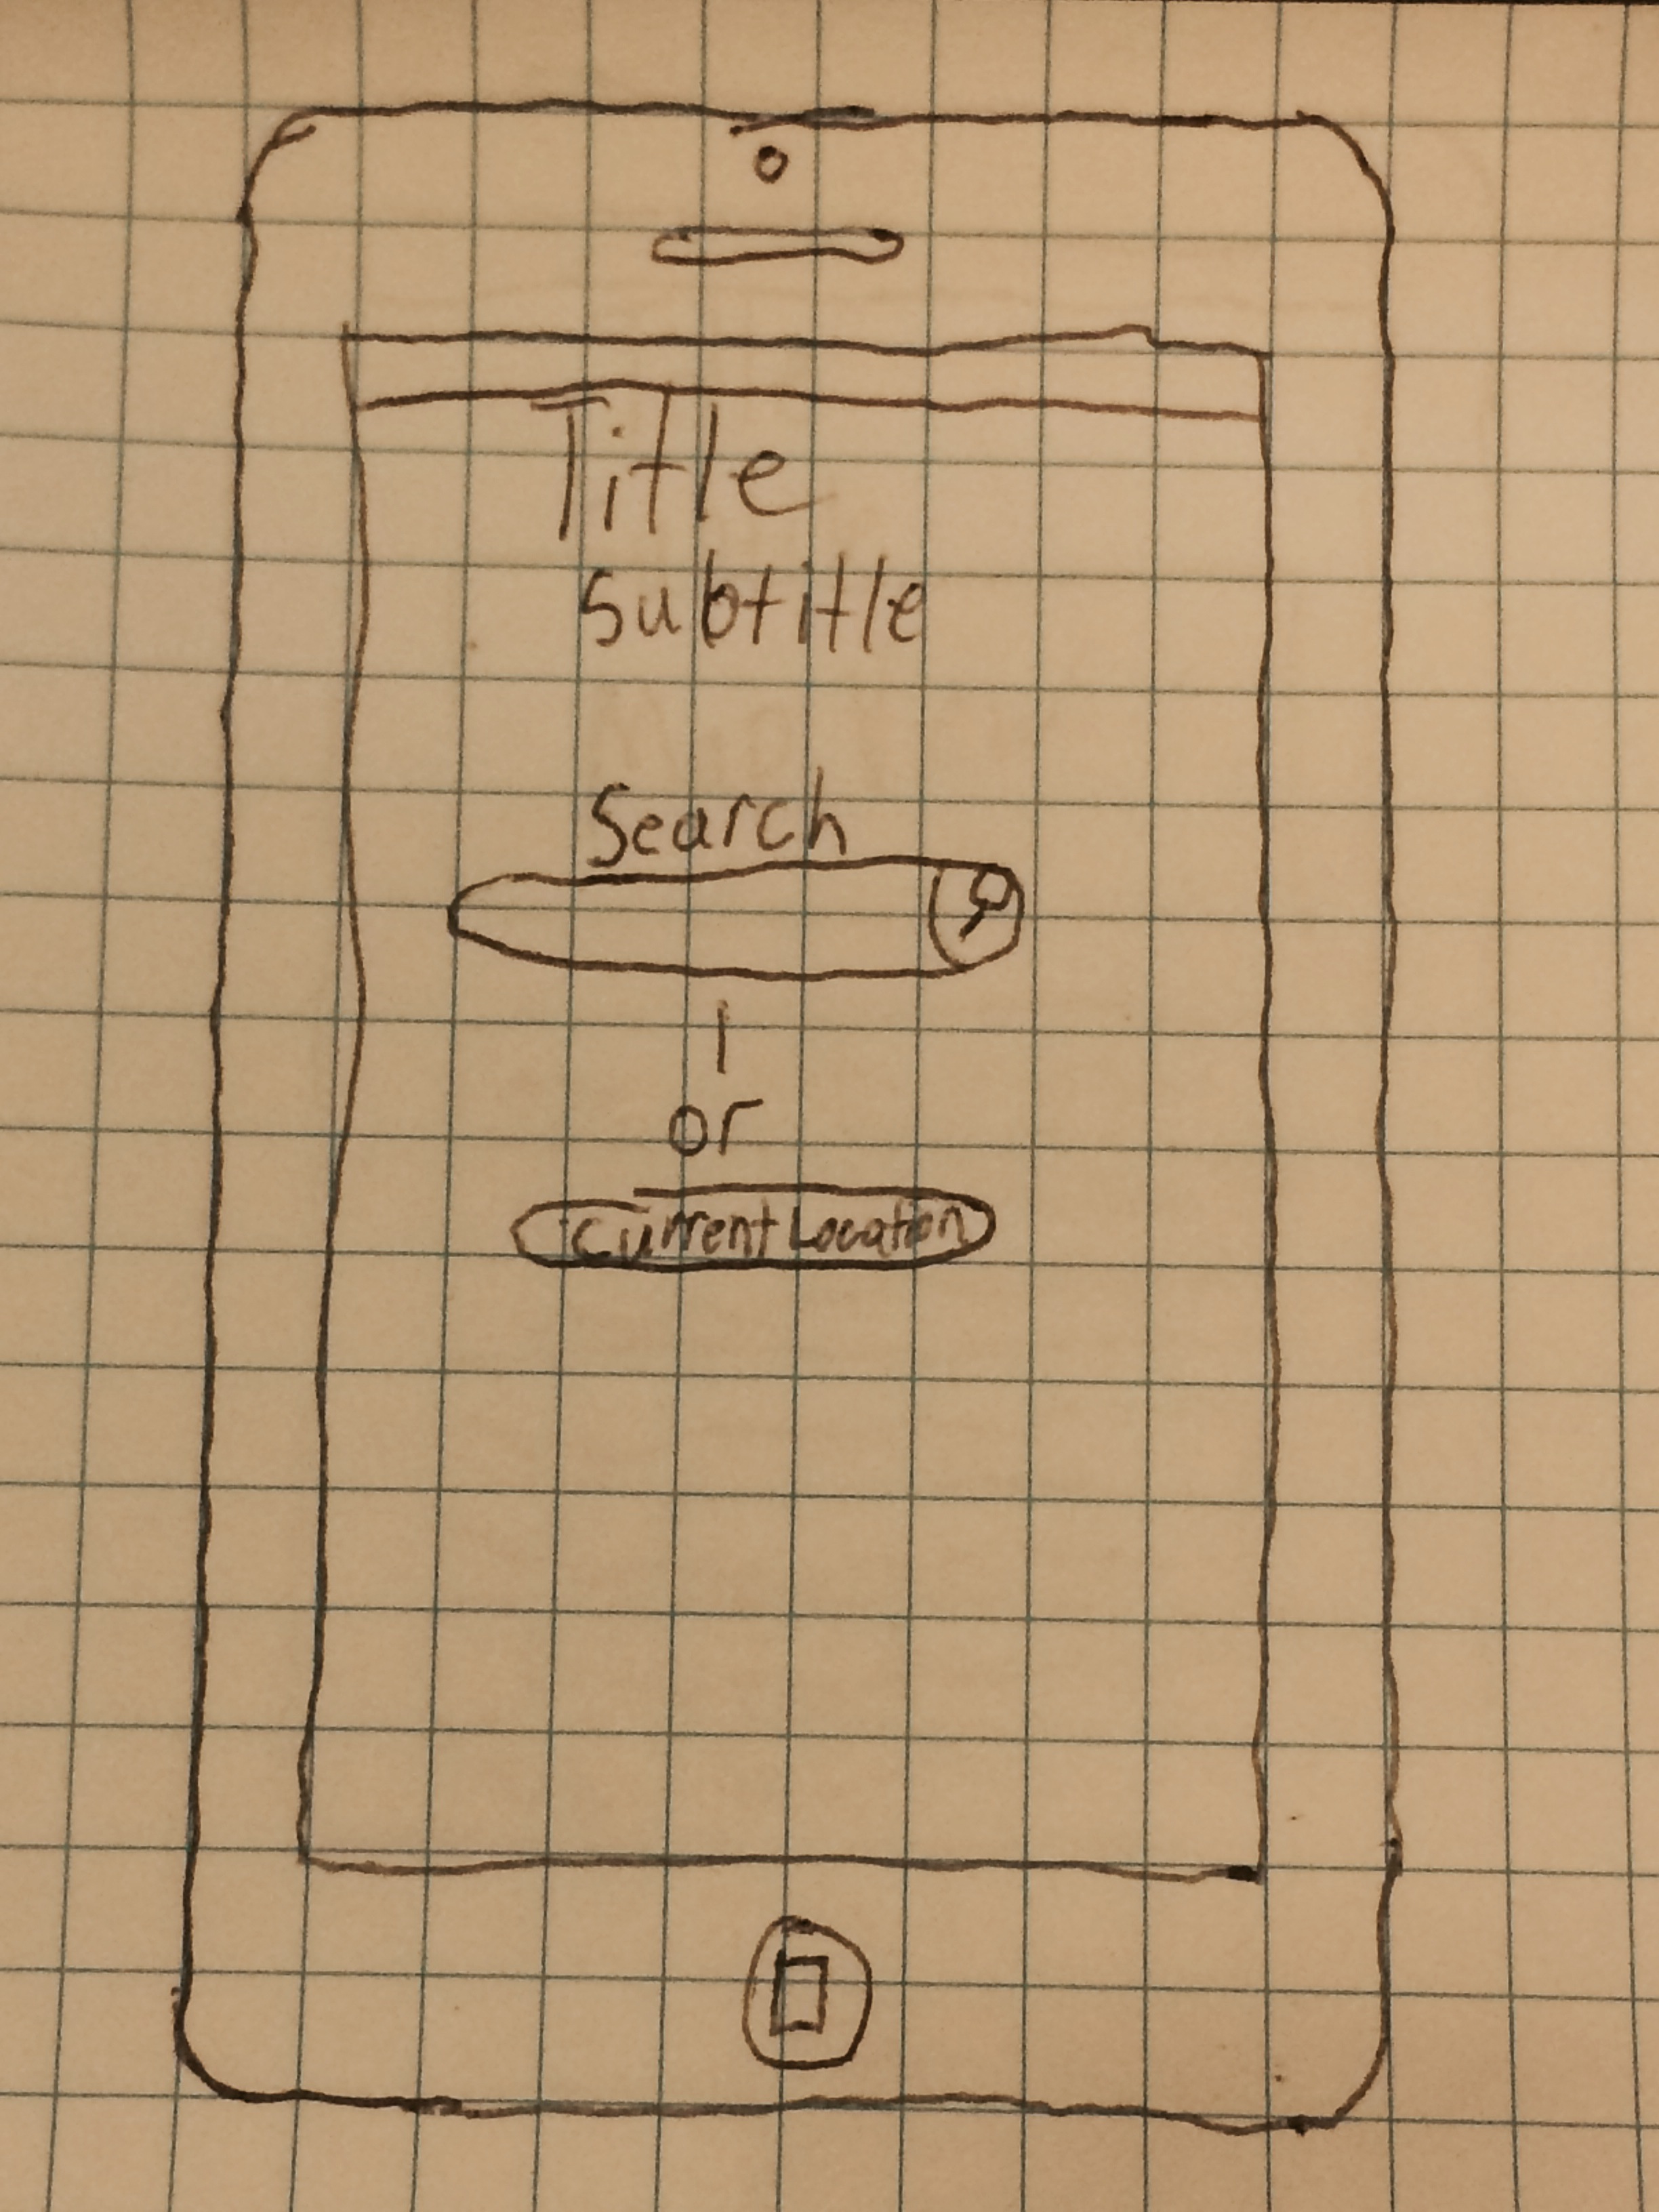 Title
Subtitle
Search
or
Current Location